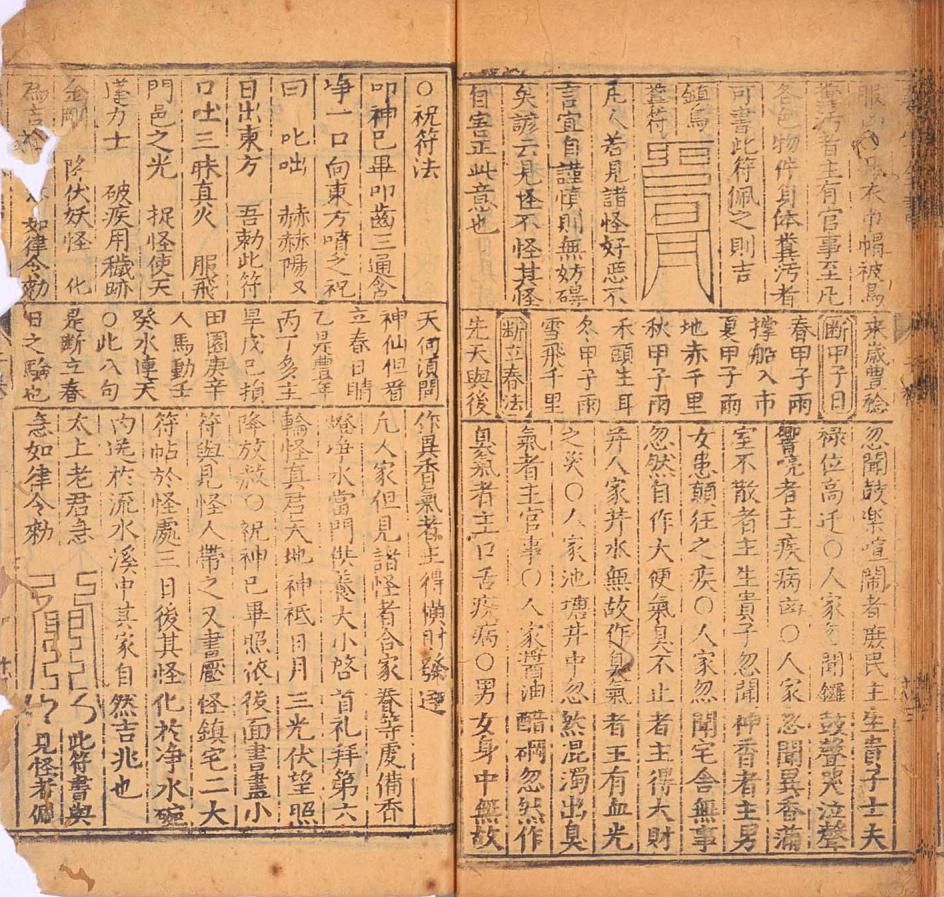 服衣巾帽被鳥
糞污者主有官事至凡
各色物件身体糞污者
可書此符佩之則吉
鎮鳥
糞符
凡人若見諸怪好惡不
言宜自謹慎則無妨碍
矣諺云見怪不怪其怪
自害正此意也
來歲豊稔
断甲子日
春甲子雨
撑船入市
夏甲子雨
地赤千里
秋甲子雨
禾頭生耳
冬甲子雨
雪飛千里
断立春法
先天與後
忽聞鼓楽喧鬧者庶民主生貴子士夫
禄位高迁○人家忽聞鑼鼓聲哭泣聲
響喨者主疾病凶○人家忽聞異香滿
室不散者主生貴子忽聞神香者主男
女患顛狂之疾○人家忽聞宅舍無事
忽然自作大便氣臭不止者主得大財
并人家井水無故作臭氣者主有血光
之災○人家池塘井中忽然混濁出臭
氣者主官事○人家醬油醋忽然作
臭氣者主口舌疾病○男女身中無故
○祝符法
叩神已畢叩齒三通含
净一口向東方噴之祝
曰 叱咄 赫赫陽又
日出東方 吾勅此符
口吐三昧真火 服飛
門邑之光 捉怪使天
蓬力士 破疾用穢跡
金剛 降伏妖怪 化
為吉 如律令勅
天何須問
神仙但看
立春日晴
乙是豊年
丙丁多主
旱戊己損
田園庚辛
人馬動壬
癸水連天
○此八句
是断立春
日之驗也
作異香氣者主得横財發達
凡人家但見諸怪者合家眷等虔備香
燈净水當門供養大小啓首礼拜第六
輪怪真君天地神祇日月三光伏望照
降放赦○祝神已畢照依後面書畫小
符與見怪人帶之又畫壓怪鎮宅二大
符帖於怪處三日後其怪化於净水碗
内送於流水溪中其家自然吉兆也
太上老君急
急如律令勅
此符書與
見怪者佩